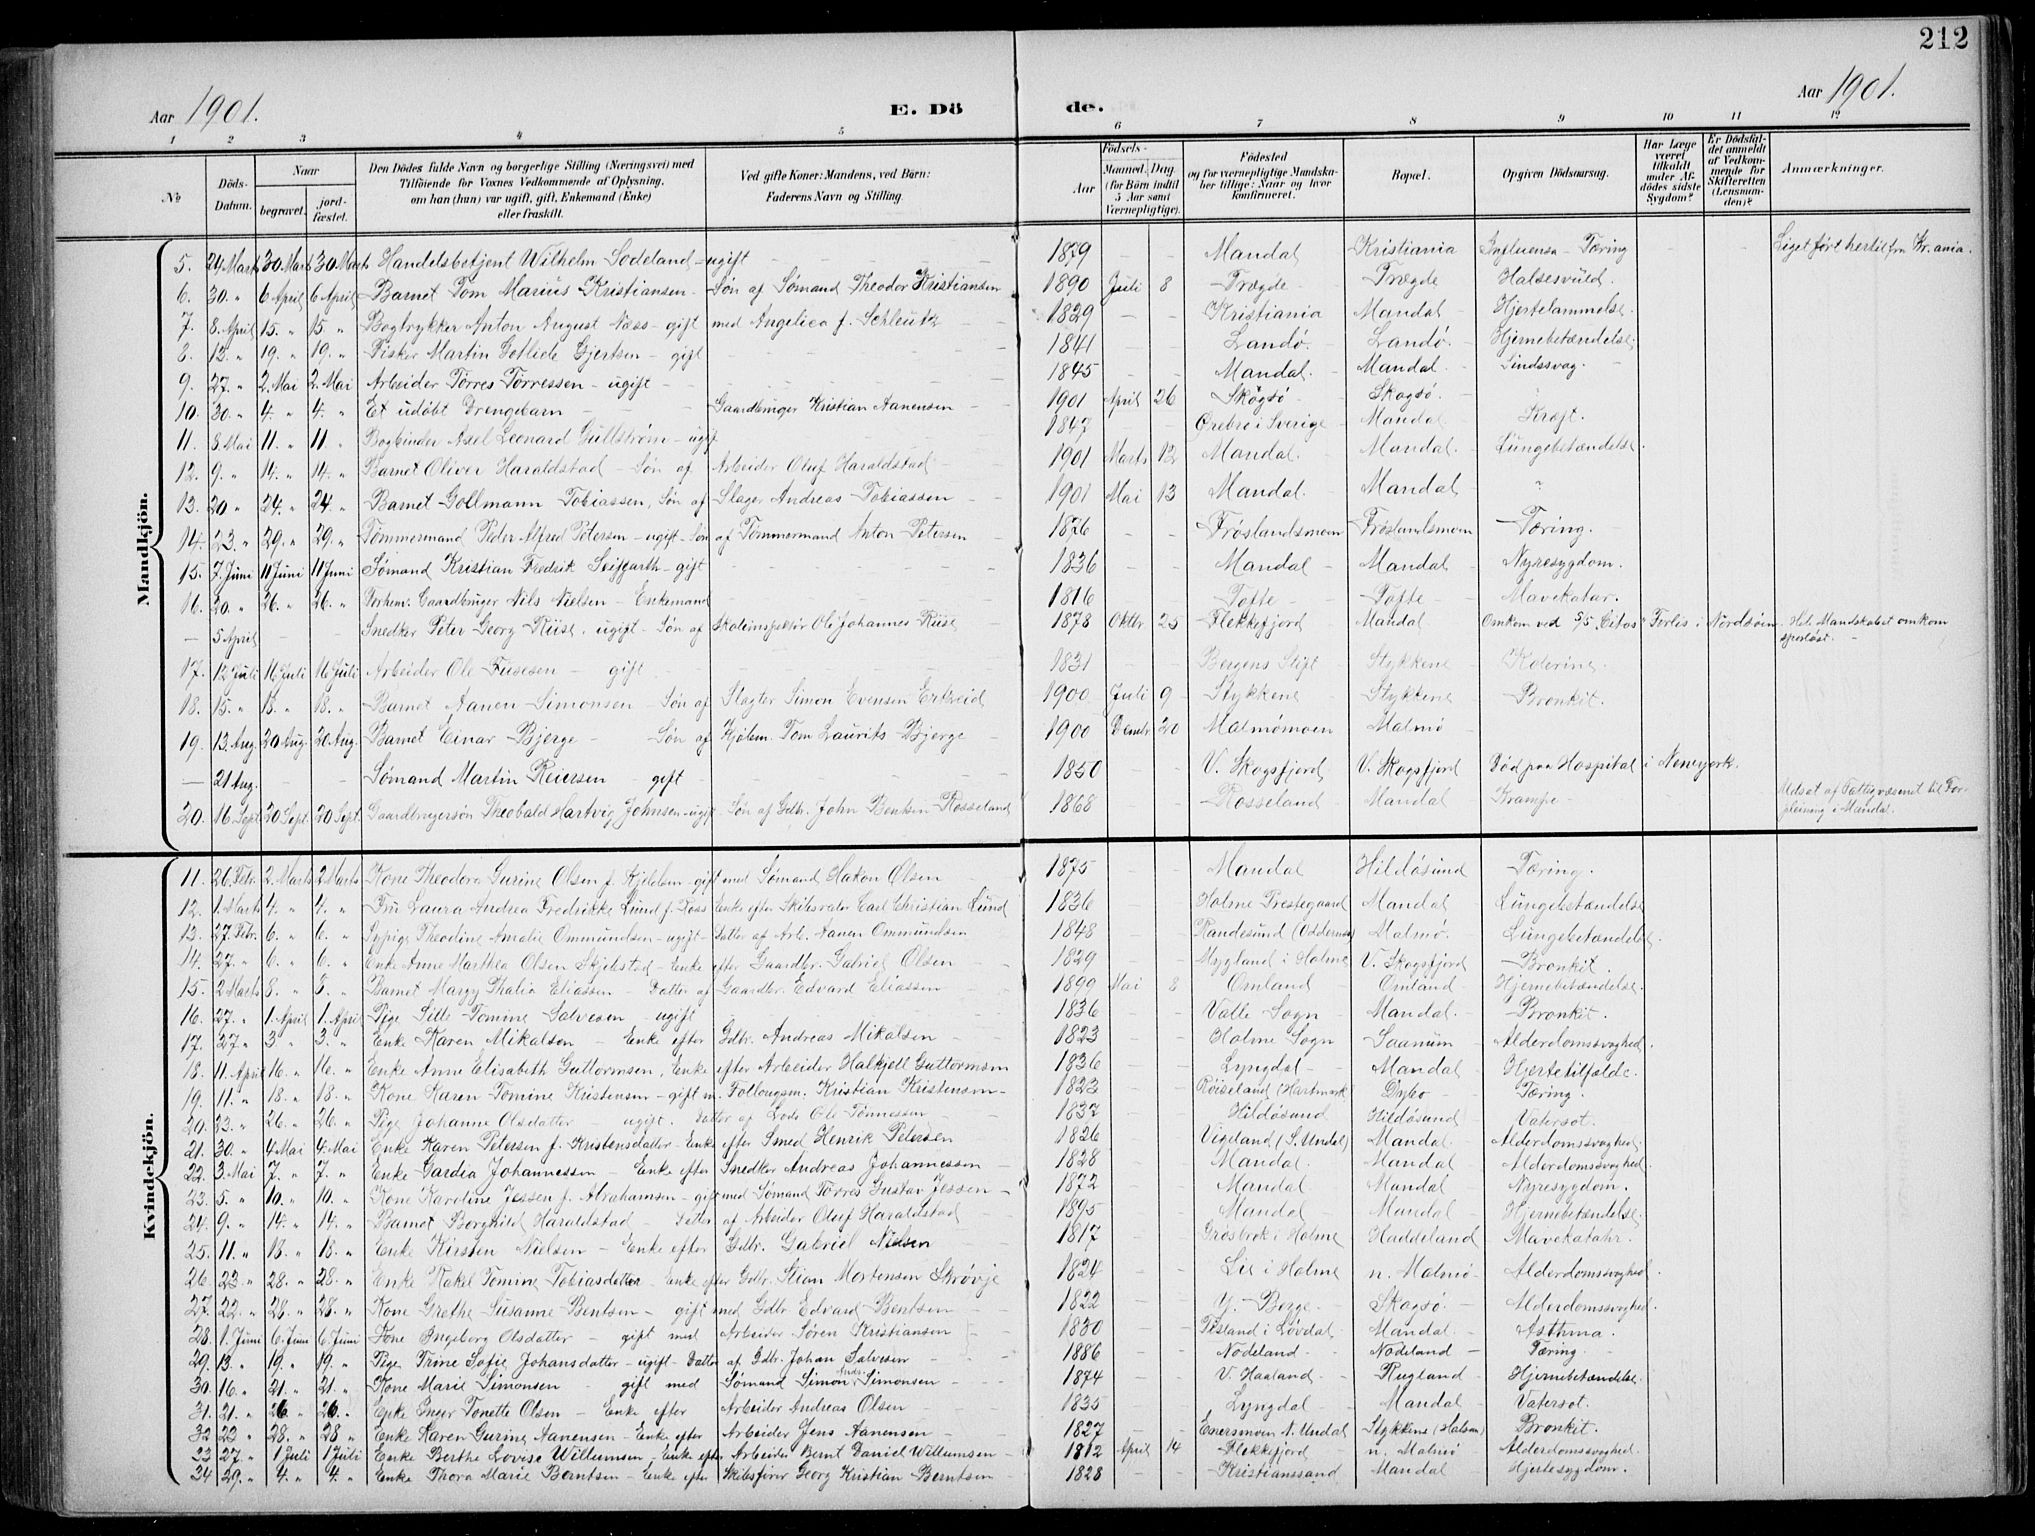 212
Aar 1901. E. Dö de. Aar 1901.
1 2 3 4 5 6 7 8 9 10 11 12
No Döds-Datum. Naar begravet. jord-fæstet. Den Dödes fulde Navn og borgerlige Stilling (Næringsvei) med Tilföiende for Voxnes Vedkommende af Oplysning, om han (hun) var ugift, gift, Enkemand (Enke) eller fraskilt. Ved gifte Koner: Mandens, ved Börn: Faderens Navn og Stilling. Födsels- Aar Maaned. Dag. (for Börn indtil 5 Aar samt Værnepligtige). Födested og for værnepligtige Mandskaber tillige: Naar og hvor konfirmeret. Bopæl. Opgiven Dödsaarsag. Har Læge været tilkaldt under Afdödes sidste Sygdom? Er Dödsfaldet anmeldt af Vedkommende for Skifteretten (Lensmanden)? Anmærkninger.
Mandkjön.
5. 24 Marts 30 Marts 30 Marts Handelsbetjent Wilhelm Sodeland - ugift 1879 Mandal Kristiania Influensa - Tæring Liget ført hertil fra Kr.ania.
6. 30. " 6 April 6 April Barnet Tom Marius Kristiansen - Søn af Sømand Theodor Kristiansen 1890 Juli 8 Trægde Trægde Halsesvuld.
7. 8. April 15. " 15 " Bogtrykker Anton August Næss - gift med Angelica f. Schleutz 1829 Kristiania Mandal Hjertelammelse.
8. 13. " 19. " 19. " Fisker Martin Gotlieb Gjertsen - gift 1841 Landø. Landø. Hjernebetændelse.
9. 27. " 2. Mai 2. Mai Arbeider Tørres Tørressen - ugift 1845 Mandal. Mandal. Sindssvag.
10. 30. " 4. " 4. " Et udøbt Drengebarn Gaardbruger Kristian Aanensen 1901 April 26 Skogsø Skogsø.
11. 8. Mai 11. " 11 " Bogbinder Axel Leonard Gullstrøm - ugift 1847 Örebro i Sverige Mandal Kræft.
12. 9. " 14. " 14. " Barnet Oliver Haraldstad - Søn af Arbeider Oluf Haraldstad 1901 Marts 12 Mandal. Mandal. Lungebetændelse
13. 20 " 24. " 24. " Barnet Gollmann Tobiassen, Søn af Slager Andreas Tobiassen 1901 Mai 13 Mandal. Mandal ?
14. 23. " 29. " 29. " Tømmermand Peder Alfred Petersen - ugift - Søn af Tømmermand Anton Petersen 1876 Frøslandsmoen Frøslandsmoen Tæring.
15. 7. Juni 11 Juni 11 Juni Sømand Kristian Fredrik Seiffarth - gift 1836 Mandal Mandal Nyresygdom.
16. 20. " 26. " 26. " Forhen. Gaardbruger Nils Nielsen - Enkemand 1816 Tofte Tofte Mavekatar.
— 5 April Snedker Peter Georg Riise. ugift - Søn af Skoleinspektør Ole Johannes Riise 1878 Oktbr 25 Flekkefjord Mandal Omkom ved S/S "Citos" Forlis i Nordsøen. Hele Mandskabet omkom sporløst.
17. 12 Juli 16 Juli 16 Juli Arbeider Ole Fusesen - gift 1831 Bergens Stift Stykkene Kolerine.
18. 15. " 18. " 18. " Barnet Aanen Simonsen - Søn af Slagter Simon Evensen Ertzeid 1900 Juli 9 Stykkene Stykkene Bronkit.
19. 13. Aug. 20 Aug. 20 Aug. Barnet Einar Bjerge - Søn af Kjølem. Tom Laurits Bjerge 1900 Dcmbr 20 Malmømoen Malmø
— 21 Aug. Sømand Martin Reiersen - gift 1850 V. Skogsfjord V. Skogsfjord Død paa Hospital i Newyork.
20. 16 Sept 20 Sept. 20 Sept. Gaardbrugersøn Theobald Hartvig Johnsen - ugift Søn af Gdbr. John Bentsen Rosseland 1868 Rosseland Mandal Krampe Udsat af Fattigvæsenet til Forpleining i Mandal.
Kvindekjön.
11. 26. Febr. 2. Marts 2 Marts Kone Theodora Gurine Olsen f. Kjeldsen - gift med Sømand Hakon Olsen 1875 Mandal Hildøsund Tæring.
12. 1. Marts 4. " 4. " Fru Laura Andrea Fredrikke Lund f. Ross Enke efter Skibsreder Carl Christian Lund 1836 Holme Prestegaard Mandal Lungebetændelse
13. 27. Febr. 6. " 6. " Sypige Theodine Amalie Ommundsen - ugift - Datter af Arb. Aanen Ommundsen 1848 Randesund (Oddernes) Malmø. Lungebetændelse.
14. 27. " 6. " 6. " Enke Anne Marthea Olsen Skjebstad - Enke efter Gaardbr. Gabriel Olsen 1829 Mygland i Holme V. Skogsfjord Bronkit.
15. 2 Marts 8. " 8. " Barnet Margy Thalia Eliassen - Datter af Gaardbr. Edvard Eliassen 1899 Mai 8 Omland Omland Hjernebetændelse.
16. 27. " 1. April 1. April Pige Sille Tomine Salvesen - ugift 1836 Valle Sogn Mandal. Bronkit.
17. 27. " 3 " 3. " Enke Karen Mikalsen - Enke efter Gdbr. Andreas Mikalsen 1823 Holme Sogn Saanum Alderdomssvaghed
18. 11. April 16. " 16. " Enke Anne Elisabeth Guttormsen, Enke efter Arbeider Halkjell Guttormsen 1836 Lyngdal Mandal Hjertetilfælde.
19. 11. " 18. " 18. " Kone Karen Tomine Kristensen - gift m. Follougsm. Kristian Kristensen 1823 Røiseland (Hartmark Dybo Tæring.
20. 23. " 26. " 26. " Pige Johanne Olsdatter - ugift. Datter af Lods Ole Tønnessen 1837 Hildøsund Hildøsund Vatersot.
21. 30. " 4 Mai 4. Mai Enke Karen Petersen f. Kristensdatter - Enke efter Smed Henrik Petersen 1826 Vigeland (S. Undal) Mandal Alderdomssvaghed
22. 3 Mai 7. " 7. " Enke Gardea Johannessen - Enke efter Snedker Andreas Johannessen 1828 Mandal. Mandal Alderdomssvaghed.
23. 5. " 10. " 10. " Kone Karoline Jessen f. Abrahamsen - gift med Sømand Tørres Gustav Jessen 1872 Mandal Mandal Nyresygdom.
24. 9. " 14. " 14. " Barnet Borghild Haraldstad - Datter af Arbeider Oluf Haraldstad 1895 Mandal Mandal Hjernebetændelse.
25. 11. " 18. " 18. " Enke Kirsten Nielsen - Enke efter Gdbr. Gabriel Nielsen 1817 Grøsbrok i Holme Haddeland Mavekatahr.
26. 23 " 28. " 28. " Enke Rakel Tomine Tobiasdatter - Enke efter Gdbr. Stian Mortensen Skrøvje 1824 Lie i Holme n. Malmø Alderdomssvaghed
27. 22. " 28. " 28. " Kone Grethe Susanne Bentsen - gift med Gdbr. Edvard Bentsen 1822 Y. Berge. Skogsø. Alderdomssvaghed.
28. 1. Juni 6. Juni 6 Juni Kone Ingeborg Olsdatter - gift med Arbeider Søren Kristiansen 1830 Tisland i Løvdal Mandal. Asthma.
29. 13. " 19. " 19. " Pige Trine Sofie Johansdatter - ugift - Datter af Gdbr. Johan Salvesen 1886 Nodeland Nodeland Tæring.
30. 16. " 21. " 21. " Kone Marie Simonsen - gift med Sømand Simon Andr. Simonsen 1874 V. Haaland Rugland Hjernebetændelse.
31. 21. " 26 " 26. " Enke Inger Tonette Olsen - Enke efter Arbeider Andreas Olsen 1835 Lyngdal Mandal Vatersot.
32 23 " 28. " 28 " Enke Karen Gurine Aanensen - Enke efter Arbeider Jens Aanensen 1827 Enersmoen N. Undal Stykkene (Halsen) Bronkit.
33 27. " 1 Juli 1 Juli Enke Berthe Lovise Willumsen - Enke efter Arbeider Bernt Daniel Willumsen 1812 April 14 Flekkefjord n. Malmø Alderdomssvaghed.
34 29. " 4. " 4. " Enke Thora Marie Berntsen - Enke efter Skibsfører Georg Kristian Berntsen 1828 Kristianssand Mandal Hjertesygdom.